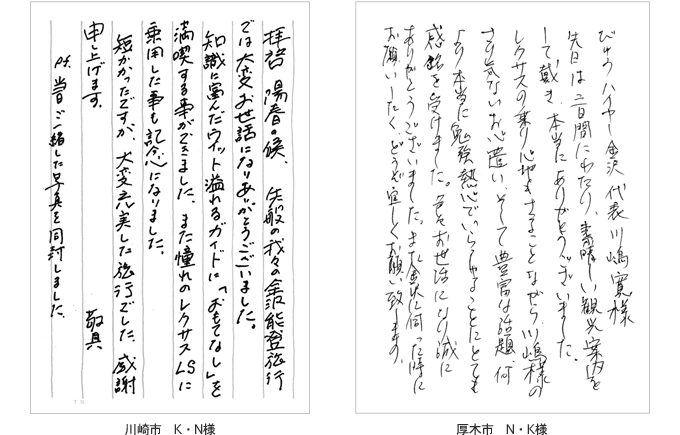 拝啓 陽春の候、先般の我々の金沢能登旅行
では大変お世話になりありがとうございました。
知識に富んだウィット溢れるガイドに「おもてなし」を
満喫する事ができました。また憧れのレクサスLSに
乗用した事も記念になりました。
短かかったですが、大変充実した旅行でした。感謝
申し上げます。
敬具
P.S. 当日ご一緒した写真を同封しました。
川崎市 K・N様
びゅうハイヤー金沢 代表 川嶋寛様
先日は二日間にわたり、素晴しい観光案内を
して戴き、本当にありがとうございました。
レクサスの乗り心地もさることながら、川嶋様の
さり気ないお心遣い、そして豊富な話題、何
より本当に勉強熱心でいらっしゃることにとても
感銘を受けました。お世話になり誠に
ありがとうございました。また金沢に伺った時に
お願いしたく、どうぞ宜しくお願い致します。
厚木市 N・K様